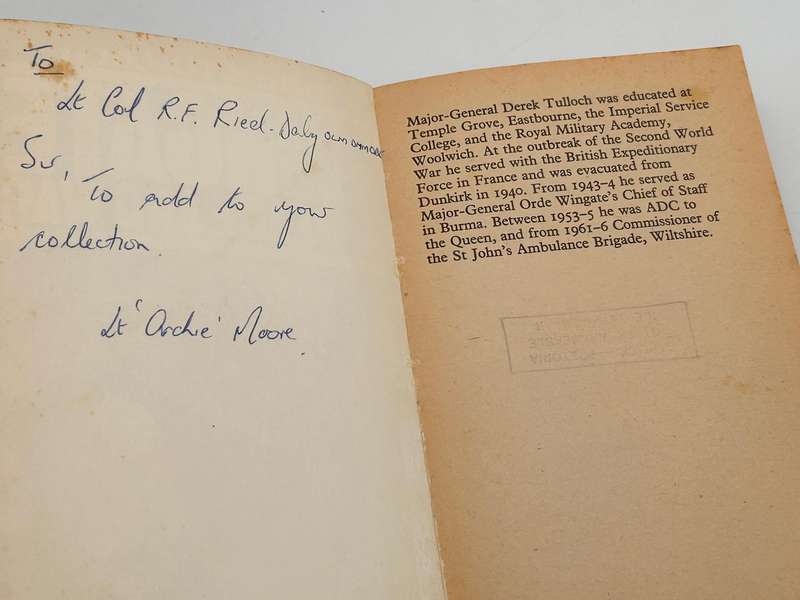 To
Lt Col R.F. Ried-Daly
Sir,
To add to your
collection.
Lt 'Archie' Moore.
Major-General Derek Tulloch was educated at
Temple Grove, Eastbourne, the Imperial Service
College, and the Royal Military Academy,
Woolwich. At the outbreak of the Second World
War he served with the British Expeditionary
Force in France and was evacuated from
Dunkirk in 1940. From 1943–4 he served as
Major-General Orde Wingate's Chief of Staff
in Burma. Between 1953–5 he was ADC to
the Queen, and from 1961–6 Commissioner of
the St John's Ambulance Brigade, Wiltshire.